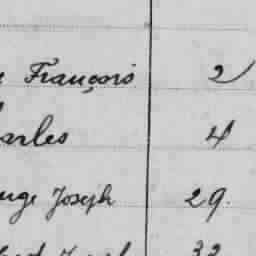 François 2
arles 4
uge Joseph 29.
32